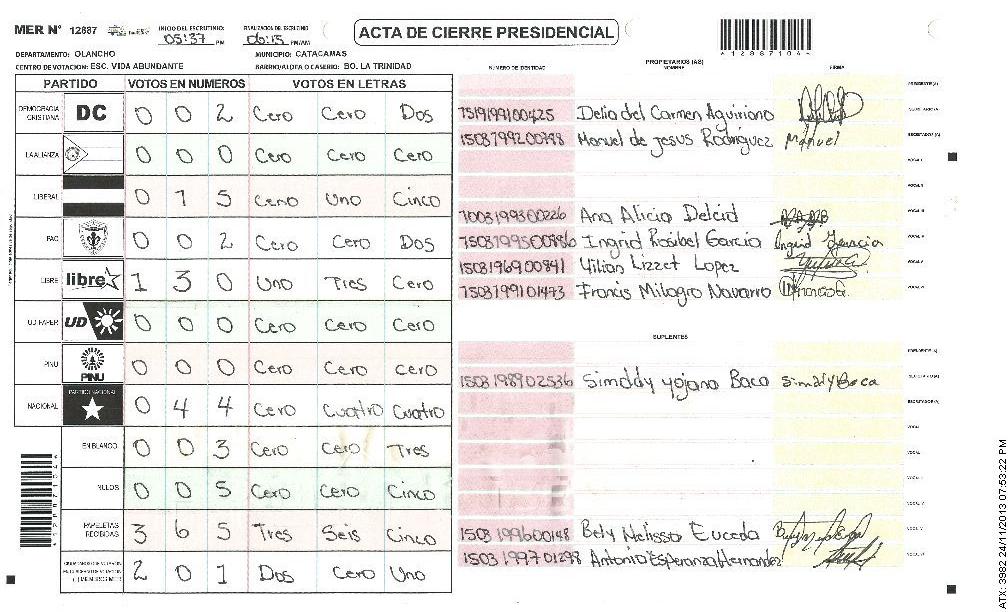 MER Nº 12887 INICIO DEL ESCRUTINIO: 05:37 PM FINALIZACION DEL ESCRUTINIO 06:15 PM/AM
ACTA DE CIERRE PRESIDENCIAL
*12887104*
DEPARTAMENTO: OLANCHO MUNICIPIO: CATACAMAS
CENTRO DE VOTACION: ESC. VIDA ABUNDANTE BARRIO/ALDEA O CASERIO: BO. LA TRINIDAD
PARTIDO VOTOS EN NUMEROS VOTOS EN LETRAS
DEMOCRACIA CRISTIANA DC 0 0 2 Cero Cero Dos
LA ALIANZA 0 0 0 Cero Cero Cero
LIBERAL 0 1 5 Cero Uno Cinco
PAC 0 0 2 Cero Cero Dos
LIBRE libre 1 3 0 Uno Tres Cero
UD FAPER UD 0 0 0 Cero Cero Cero
PINU PINU 0 0 0 Cero Cero cero
NACIONAL PARTIDO NACIONAL 0 4 4 Cero Cuatro Cuatro
EN BLANCO 0 0 3 Cero Cero Tres
NULOS 0 0 5 Cero Cero Cinco
PAPELETAS RECIBIDAS 3 6 5 Tres Seis Cinco
2 0 1 Dos Cero Uno
PROPIETARIOS (AS)
NUMERO DE IDENTIDAD NOMBRE FIRMA
PRESIDENTE(A)
Delia del Carmen Aguiriano SECRETARIO(A)
Manuel de jesus Rodriguez Manuel ESCRUTADOR (A)
VOCAL I
VOCAL II
Ana Alicia Delcid VOCAL III
Ingrid Rosibel Garcia VOCAL IV
1503196900841 Yilian Lizzet Lopez VOCAL V
Francis Milagro Navarro VOCAL VI
SUPLENTES
PRESIDENTE (A)
1503198902536 Simddy yojana Baca Simddy Baca SECRETARIO(A)
ESCRUTADOR (A)
1503199600148 Bety Melissa Euceda
1503199701298 Antonio Esperanza Hernandez
ATX: 3982 24/11/2013 07:53:22 PM